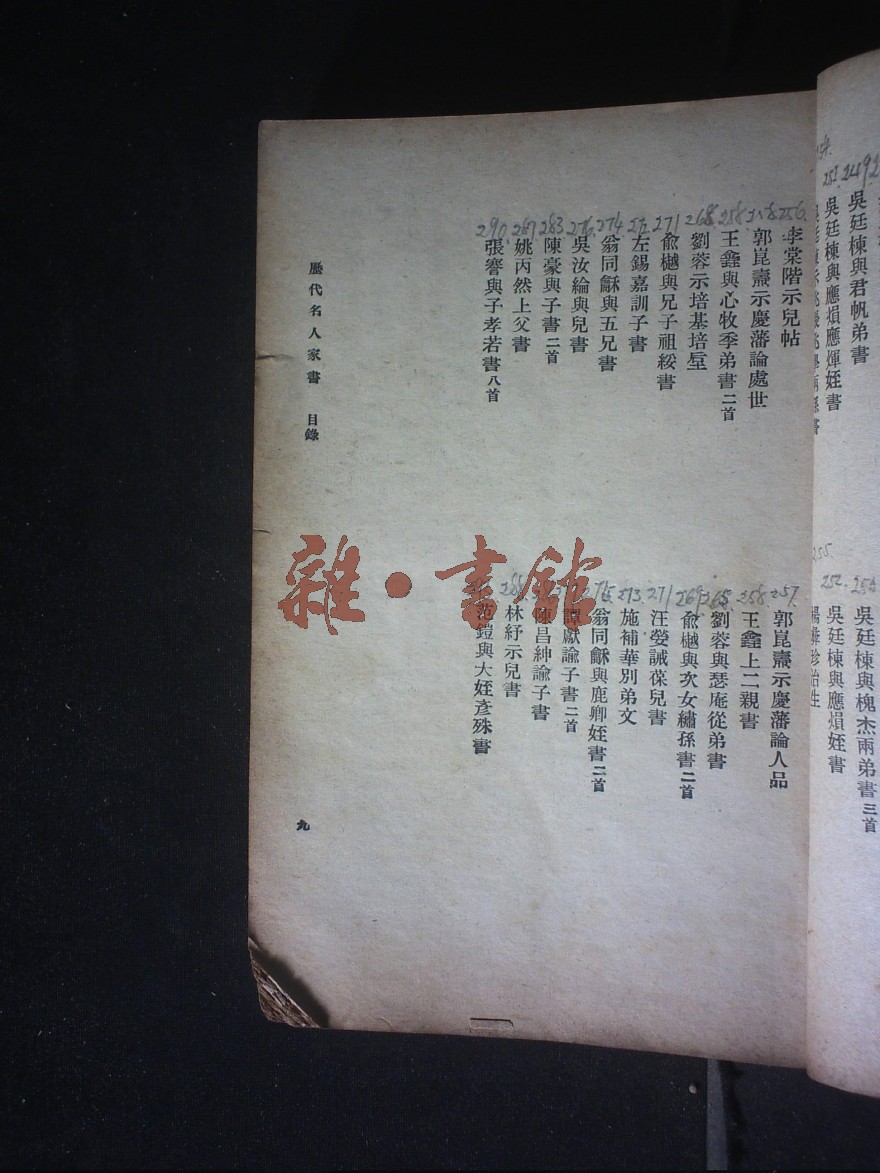 249
吳廷棟與君帆弟書
252
吳廷棟與應熉應煇姪書
吳廷棟與槐杰兩弟書三首
252.
吳廷棟與應熉姪書
255.
256.
李棠階示兒帖
257.
郭崑燾示慶藩論人品
258.
郭崑燾示慶藩論處世
258.
王鑫上二親書
258.
王鑫與心牧季弟書二首
265.
劉蓉與瑟庵從弟書
268.
劉蓉示培基培垕
269
俞樾與次女繡孫書二首
271
俞樾與兄子祖綏書
271
汪瑩誡葆兒書
左錫嘉訓子書
273
施補華別弟文
274
翁同龢與五兄書
275
翁同龢與鹿卿姪書二首
276.
吳汝綸與兒書
譚獻諭子書二首
283
陳豪與子書二首
陳昌紳諭子書
287
姚丙然上父書
288
林紓示兒書
290.
張謇與子孝若書八首
范鎧與大姪彥殊書
歷代名人家書 目錄
九
雜·書館